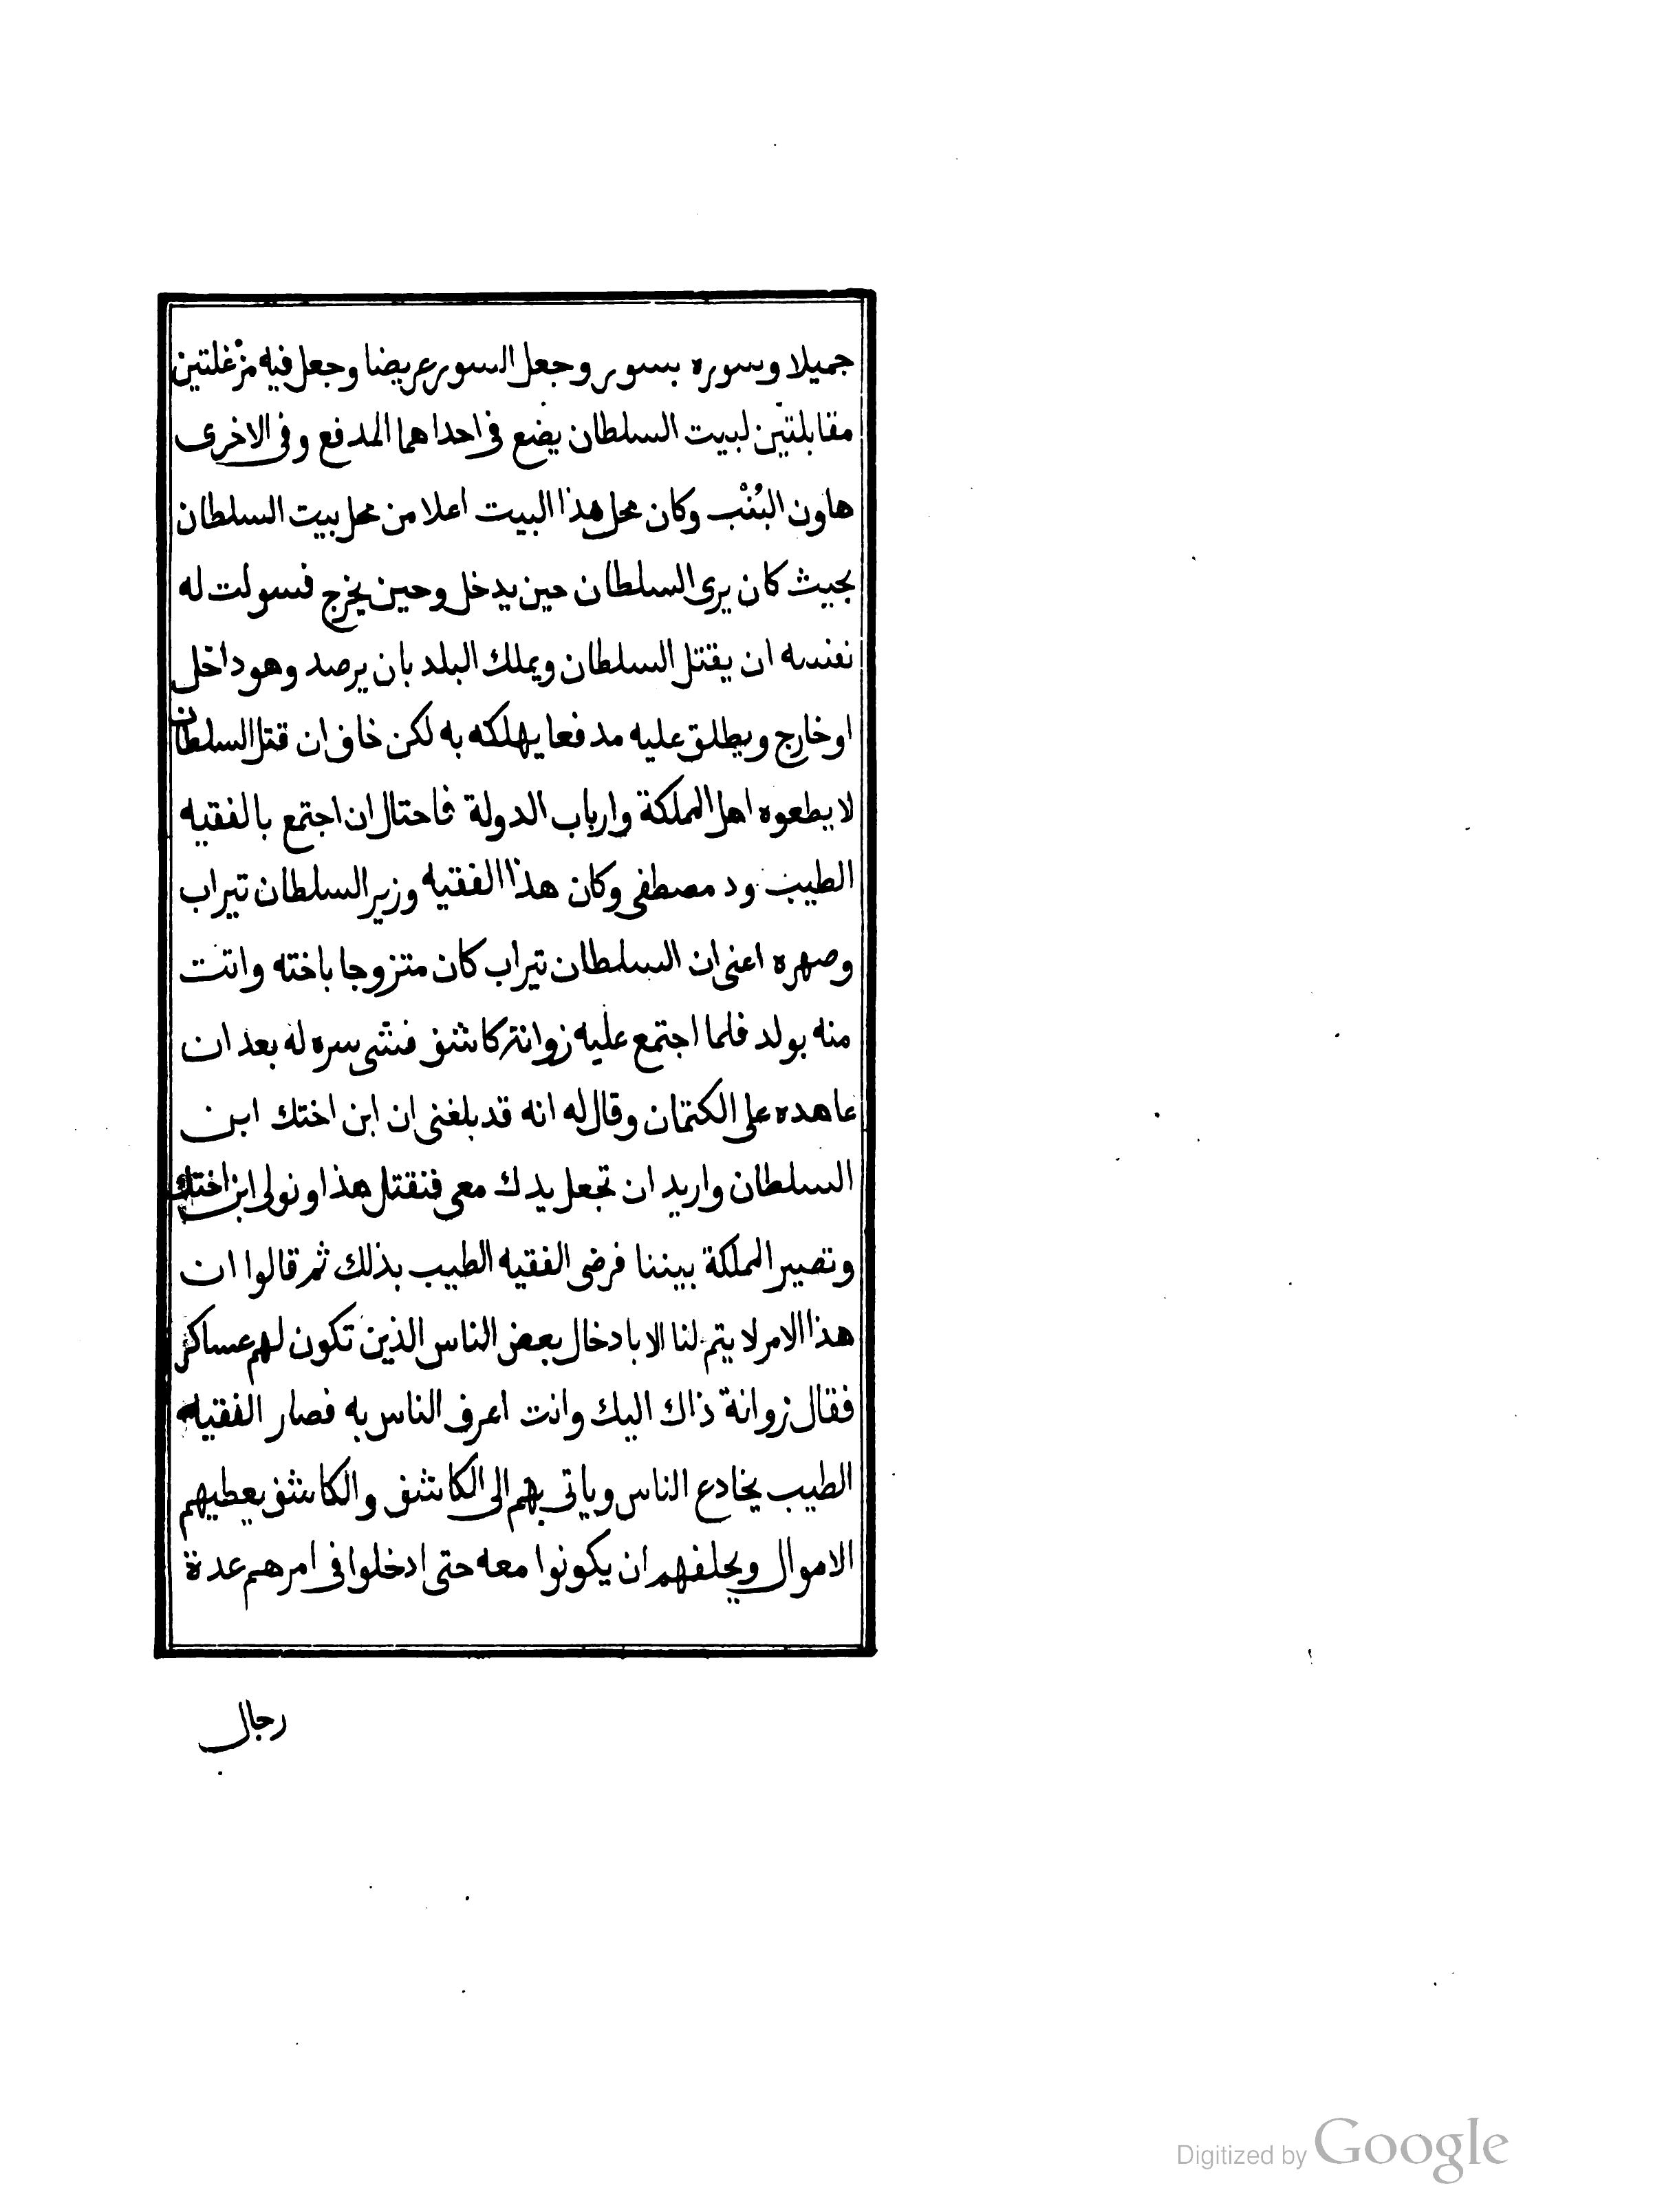 جميلا وسوره بسور وجعل السور عريضا وجعل فيه مزْغلتين
مقابلتين لبيت السلطان يضع فى احداهما المدفع وفى الاخرى
هاون البُنْب وكان محل هذا البيت اعلا من محل بيت السلطان
بحيث كان يرى السلطان حين يدخل وحين يخرج فسولت له
نفسه ان يقتل السلطان ويملك البلد بان يرصد وهو داخل
او خارج ويطلق عليه مدفعا يهلكه به لكن خاف ان قتل السلطان
لا يطعوه اهل المملكة وارباب الدولة فاحتال ان اجتمع بالفقيه
الطيب ود مصطفى وكان هذا الفقيه وزير السلطان تيراب
وصهره اعنى ان السلطان تيراب كان متزوجا باخته واتت
منه بولد فلما اجتمع عليه زوانة كاشف فشى سره له بعد ان
عاهده على الكتمان وقال له انه قد بلغنى ان ابن اختك ابن
السلطان واريد ان تجعل يدك معى فنقتل هذا ونولى ابن اختك
وتصير المملكة بيننا فرضى الفقيه الطيب بذلك ثم قالوا ان
هذا الامر لا يتم لنا الا بادخال بعض الناس الذين تكون لهم عساكر
فقال زوانة ذاك اليك وانت اعرف الناس به فصار الفقيه
الطيب يخادع الناس وياتى بهم الى الكاشف والكاشف يعطيهم
الاموال ويحلفهم ان يكونوا معه حتى ادخلوا فى امرهم عدة
رجال
Digitized by Google